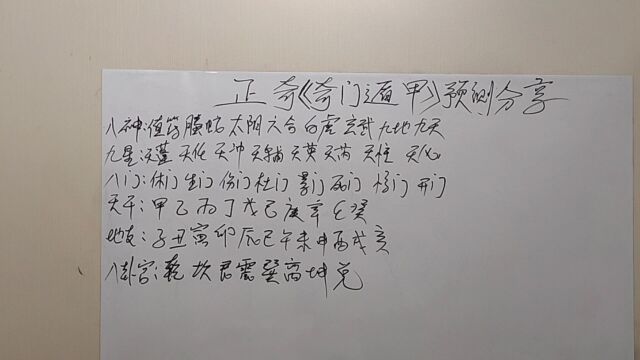 正奇《奇门遁甲》预测分享
八神:值符 腾蛇 太阴 六合 白虎 玄武 九地 九天
九星:天蓬 天任 天冲 天辅 天英 天芮 天柱 天心
八门:休门 生门 伤门 杜门 景门 死门 惊门 开门
天干:甲乙丙丁戊己庚辛壬癸
地支:子丑寅卯辰巳午未申酉戌亥
八卦宫:乾 坎 艮 震 巽 离 坤 兑